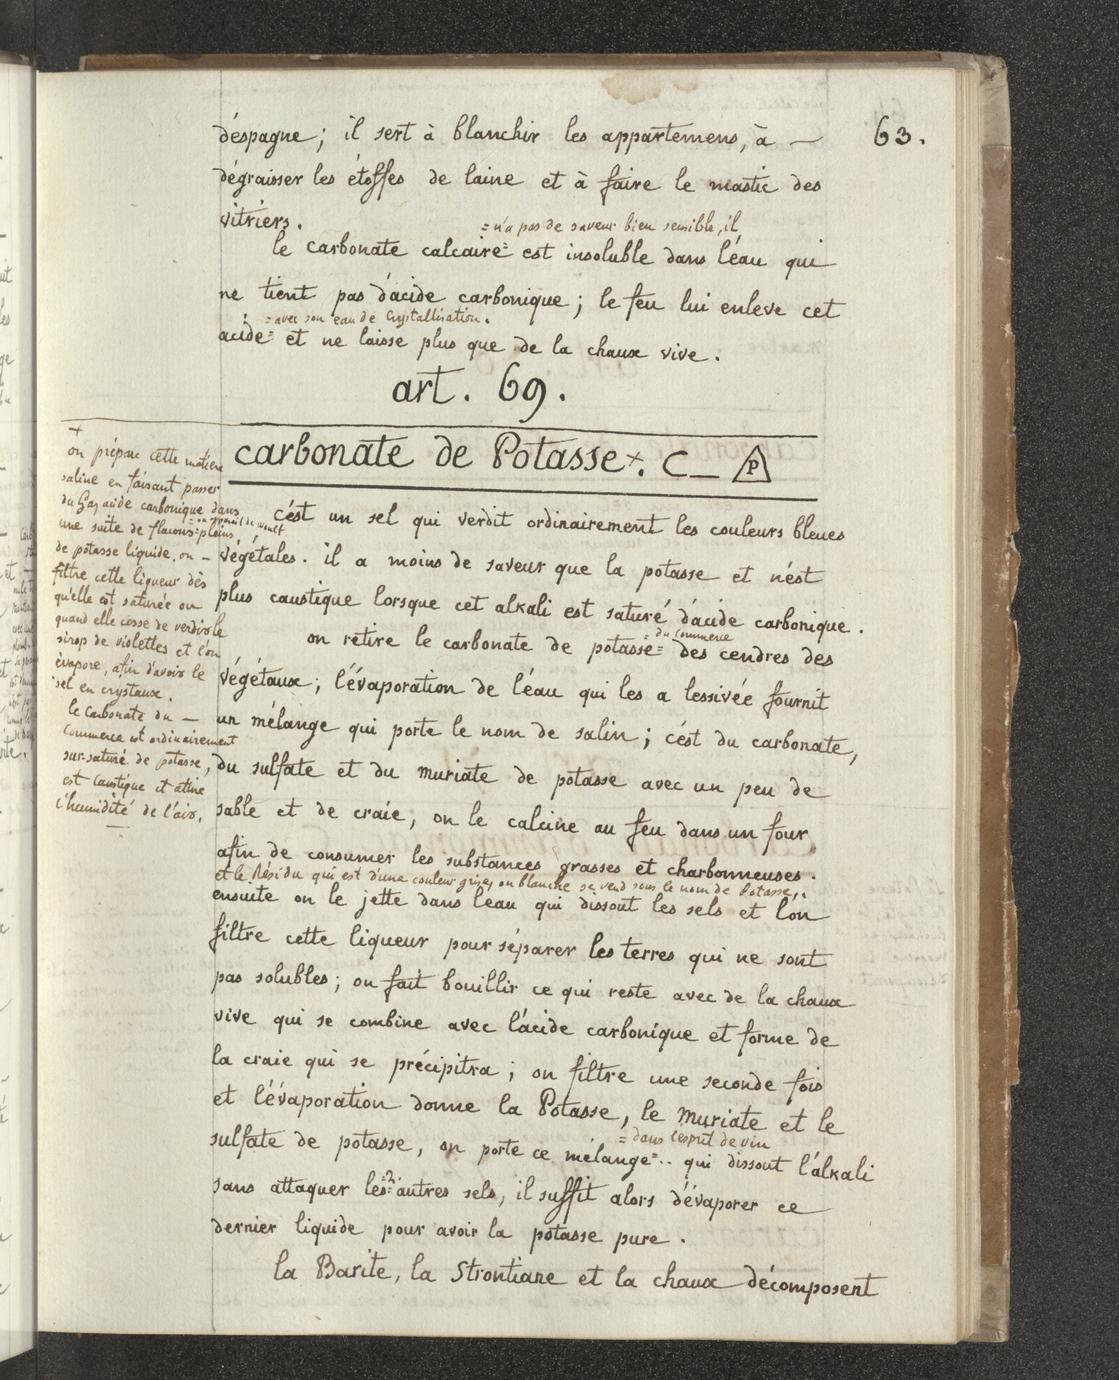 63.
d'éspagne; il sert à blanchir les appartemens, à —
dégraisser les étoffes de laine et à faire le mastic des
vitriers.
= n'a pas de saveur bien sensible, il
le carbonate calcaire= est insoluble dans l'éau qui
ne tient pas d'acide carbonique; le feu lui enleve cet
= avec son eau de Crystallisation.
acide= et ne laisse plus que de la chaux vive.
art. 69.
carbonate de Potasse+. C_ P
c'ést un sel qui verdit ordinairement les couleurs bleues
végétales. il a moins de saveur que la potasse et n'ést
plus caustique lorsque cet alkali est saturé d'acide carbonique.
= du Commerce
on retire le carbonate de potasse= des cendres des
végétaux; l'évaporation de l'éau qui les a lessivée fournit
un mélange qui porte le nom de salin; c'ést du carbonate,
du sulfate et du muriate de potasse avec un peu de
sable et de craie, on le calcine au feu dans un four
afin de consumer les substances grasses et charbonneuses.
et le Résidu qui est d'une couleur grise, ou blanche se vend sous le nom de Potasse,.
ensuite on le jette dans l'eau qui dissout les sels et l'ón
filtre cette liqueur pour séparer les terres qui ne sont
pas solubles; on fait bouillir ce qui reste avec de la chaux
vive qui se combine avec l'ácide carbonique et forme de
la craie qui se précipitra; on filtre une seconde fois
et l'évaporation donne la Potasse, le muriate et le
= dans l'esprit de vin
sulfate de potasse, on porte ce mélange=.. qui dissout l'álkali
sans attaquer les=2= autres sels, il suffit alors d'évaporer ce
dernier liquide pour avoir la potasse pure.
la Barite, la Strontiane et la chaux décomposent
+
on prépare cette matiere
saline en faisant passer
du Gaz acide carbonique dans
une suite de flacons= pleins
de potasse liquide. on —
filtre cette liqueur dès
qu'elle est saturée ou
quand elle cesse de verdir le
sirop de violettes et l'on
évapore, afin d'avoir le
sel en crystaux.
le Carbonate du —
Commerce est ordinairement
sur-saturé de potasse,
est Caustique et attire
l'humidité de l'air.